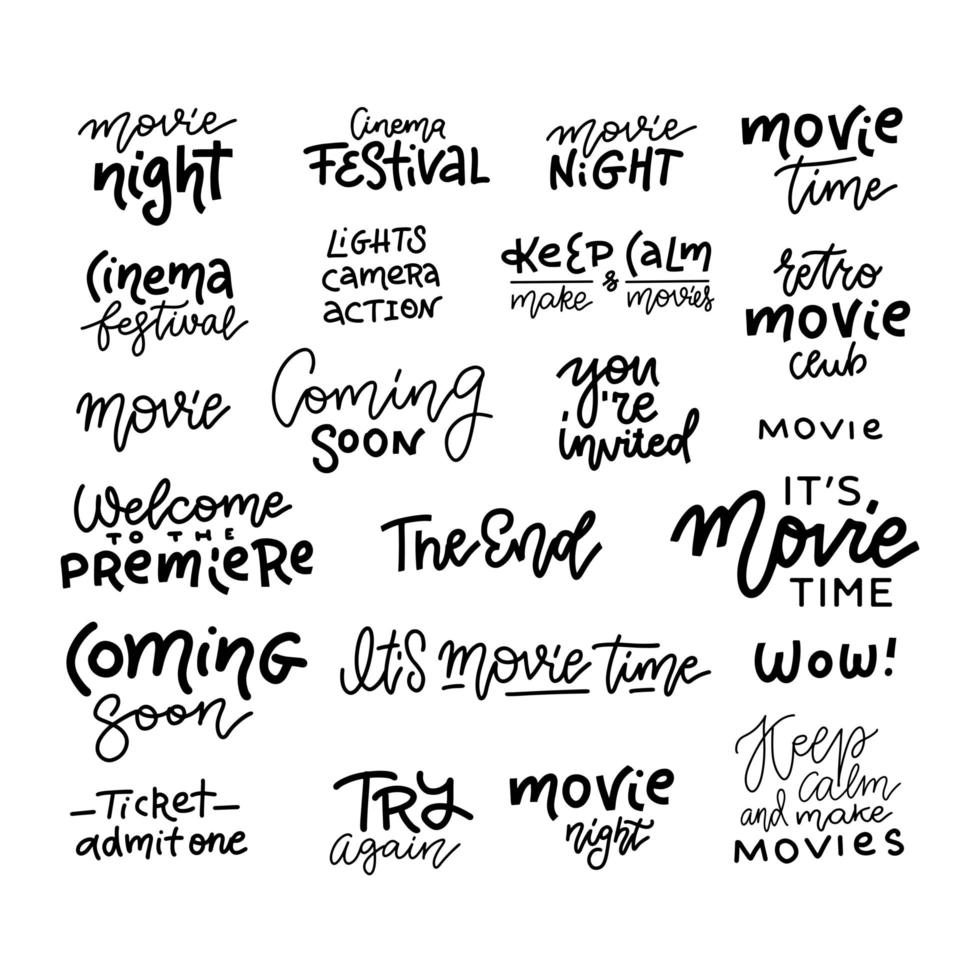 movie
night
Cinema
FESTIVAL
movie
NiGHT
movie
time
Cinema
festival
LiGHTS
camera
aCTION
KEEP & CALM
make movies
retro
movie
club
movie
Coming
SOON
you
're
invited
MOVIE
Welcome
TO THE
PREMIERE
The End
IT'S
Movie
TIME
Coming
soon
It's movie time
WOW!
Keep
calm
and make
MOVIES
–Ticket–
admit one
TRY
again
movie
night